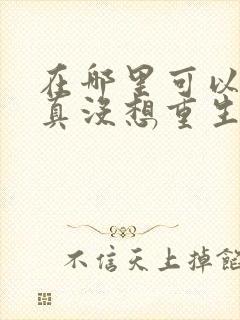 在哪里可以
真没想重生
不信天上掉馅